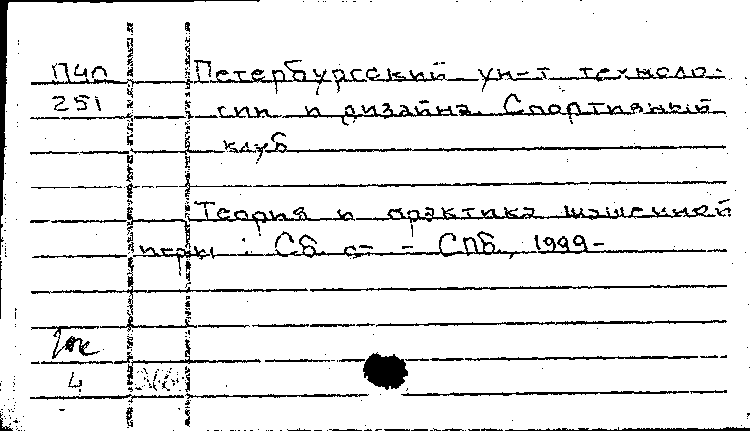 П40 Петербургский ун-т техноло-
251 гии и дизайна. Спортивный
клуб
Теория и практика шашечной
игры : Сб. ст. - СПб, 1999-
4